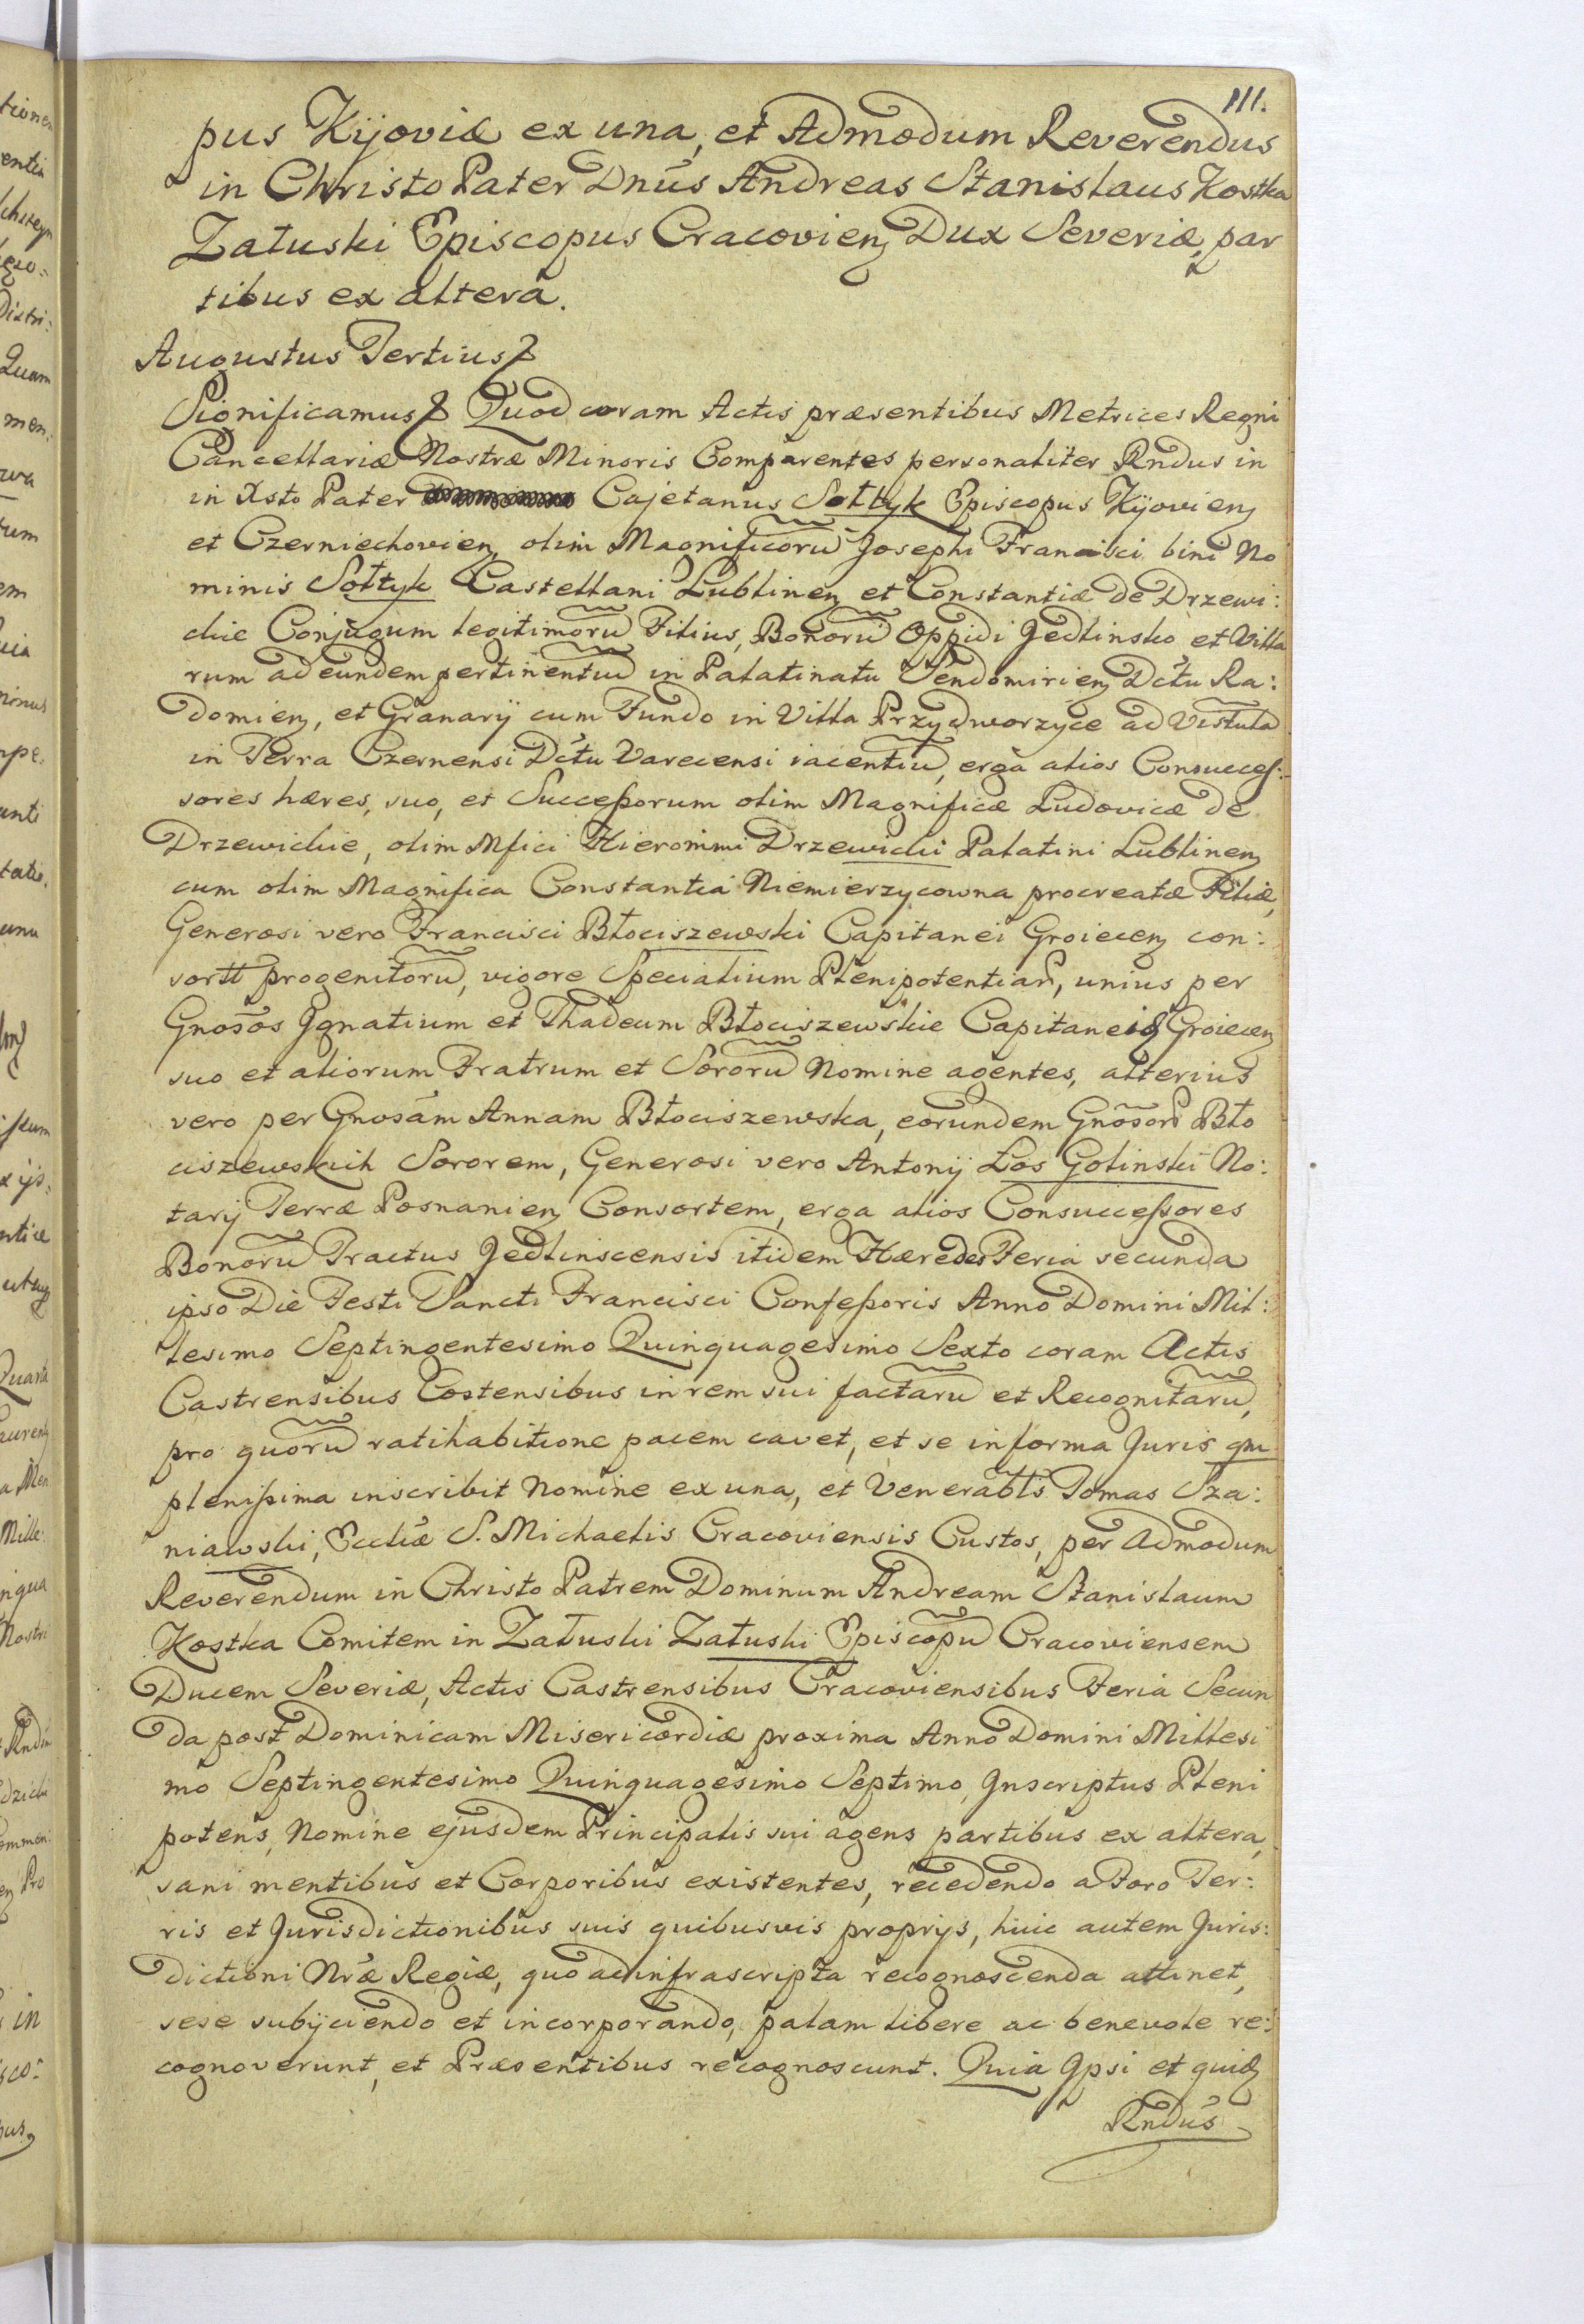 111.
pus Kijoviæ ex una, et Admodum Reverendus
in Christo Pater Dnus Andreas Stanislaus Kostka
Załuski Episcopus Cracovien Dux Severiæ, par
tibus ex altera.
Augustus Tertius
Significamus Quod coram Actis præsentibus Metrices Regni
Cancellariæ Nostræ Minoris Comparentes personaliter Rndus in
in Xsto Pater Cajetanus Sołtyk Episcopus Kijovien
et Czerniechovien olim Magnificorũ Josephi Francisci bini No
minis Sołtyk Castellani Lublinen et Constantiæ de Drzewi:
ckie Conjugum legitimorũ Filius, Bonorũ Oppidi Jedlinsko et Villa
rum ad eundem pertinentiũ in Palatinatu Sendomirien Dctu Ra:
domien, et Granarij cum Fundo in Villa Przydworzyce ad Vistulã
in Terra Czernensi Dctu Varecensi iacentiũ, erga alios Consucces:
sores hæres, suo, et Successorum olim Magnificæ Ludovicæ de
Drzewickie, olim Mfici Hieronimi Drzewicki Palatini Lublinen
cum olim Magnifica Constantia Niemierzycowna procreatæ Filiæ,
Generosi vero Francisci Błociszewski Capitanei Groiecen con:
sortt progenitorũ, vigore Specialium Plenipotentiar, unius per
Gnosos Ignatium et Thadeum Błociszewskie Capitaneid Groiecen
suo et aliorum Fratrum et Sororũ Nomine agentes, alterius
vero per Gnosam Annam Błociszewska, eorundem Gnosor Bło
ciszewskich Sororem, Generosi vero Antonij Łos Golinski No:
tarij Terræ Posnanien Consortem, erga alios Consuccessores
Bonorũ Tractus Jedlinscensis itidem Hæredes Feria secunda
ipso Die Festi Sancti Francisci Confessoris Anno Domini Mil:
lesimo Septingentesimo Quinquagesimo Sexto coram Actis
Castrensibus Costensibus in rem sui factarũ et Recognitarũ,
pro quorũ ratihabitione pacem cavet, et se in forma Juris qm
plenissima inscribit Nomine ex una, et Venerabls Tomas Sza:
niawski, Eccliæ S. Michaelis Cracoviensis Custos, per Admodum
Reverendum in Christo Patrem Dominum Andream Stanislaum
Kostka Comitem in Załuski Załuski Episcopũ Cracoviensem
Ducem Severiæ, Actis Castrensibus Cracoviensibus Feria Secun
da post Dominicam Misericordiæ proxima Anno Domini Millesi
mo Septingentesimo Quinquagesimo Septimo, Inscriptus Pleni
potens, Nomine ejusdem Principalis sui agens partibus ex altera,
sani mentibus et Corporibus existentes, recedendo a Foro Ter:
ris et Jurisdictionibus suis quibusvis proprijs, huic autem Juris:
dictioni Nræ Regiæ, quo ad infrascripta recognoscenda attinet,
sese subijciendo et incorporando, palam libere ac benevole re:
cognoverunt, et Præsentibus recognoscunt. Quia Ipsi et quid
Rndus